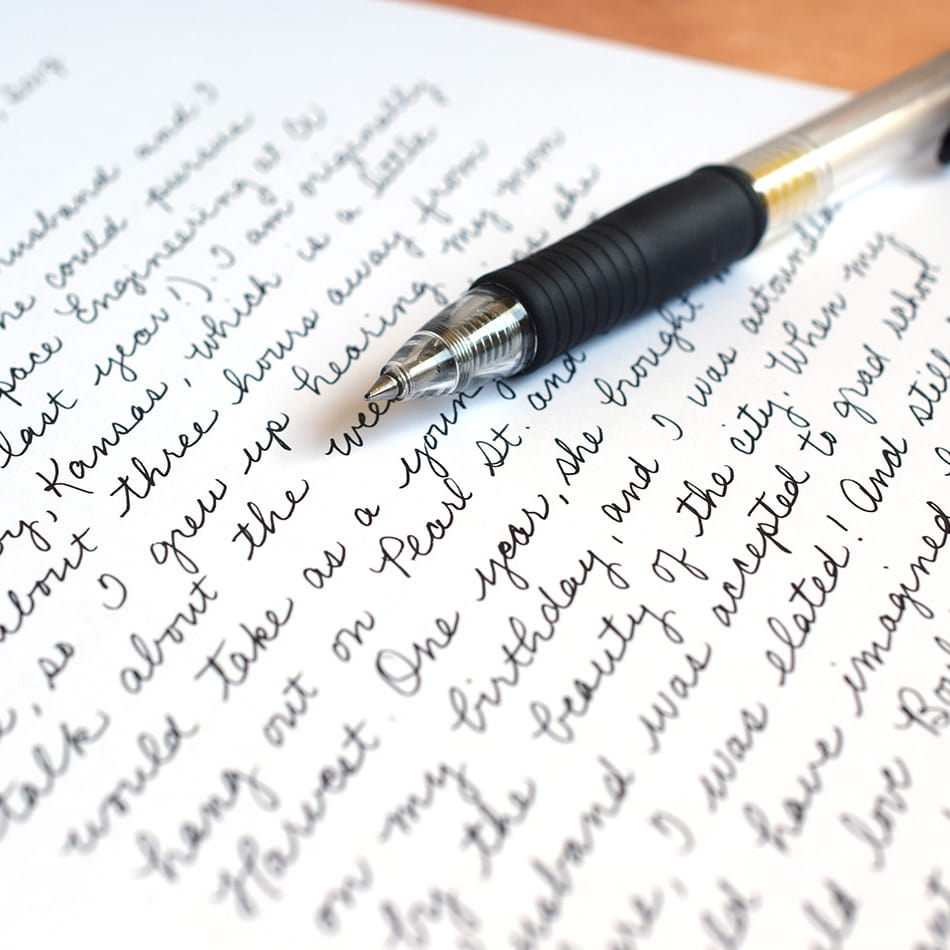 husband and I
he could pursue
space Engineering at
last year!). I am originally
Kansas, which is a little
about three hours away from
, so I grew up hearing my mom
talk about the she
would take as a young
hang out on Pearl St. and
Harvest. One year, she brought
on my birthday, and I was astounded
by the beauty of the city. When my
husband was accepted to grad school
I was elated! And still
have imagined
love